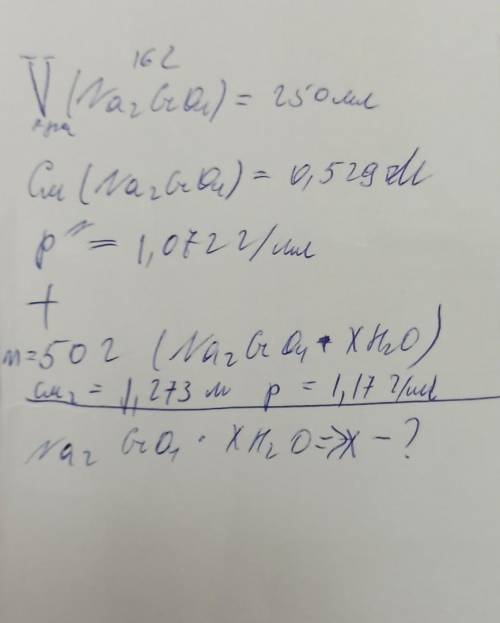 162
V (Na₂CrO₄) = 250 мл
р-ра
Cм (Na₂CrO₄) = 0,529 M
ρ = 1,072 г/мл
+
m = 50 г (Na₂CrO₄ • XH₂O)
Cм₂ = 1,273 м ρ = 1,17 г/мл
Na₂CrO₄ • XH₂O => X - ?